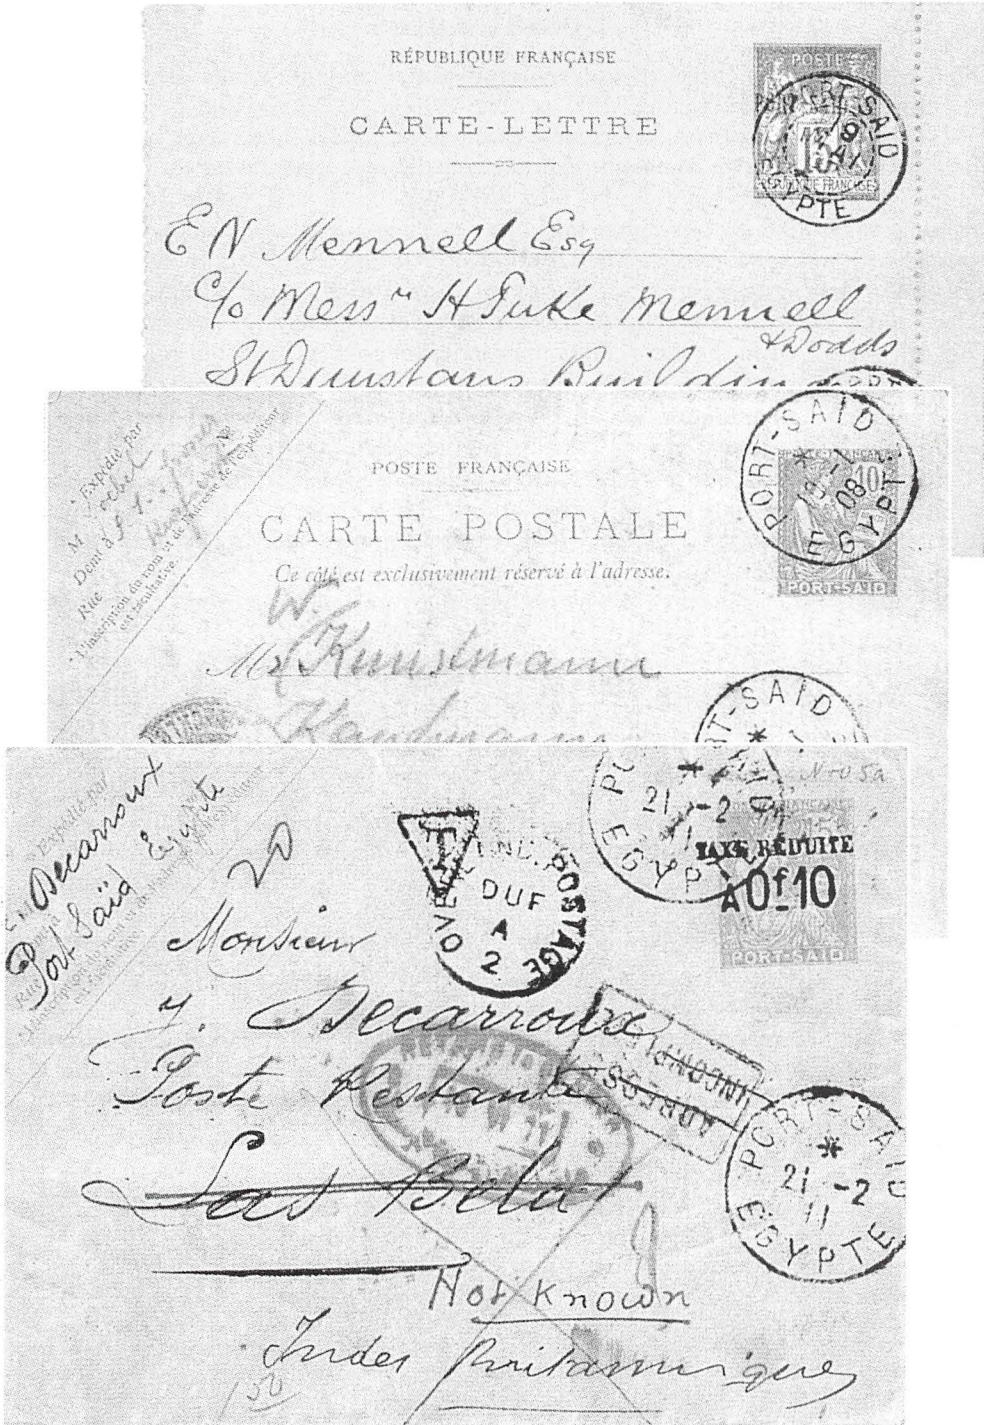 RÉPUBLIQUE FRANÇAISE
CARTE-LETTRE
POSTES
15
PORT-SAID
9
MAI
EGYPTE
E N Mennell Esq
C/o Messrs H Tuke Mennell
& Dodds
St Dunstans Building
Expédié par
M
Demt à
Rue Nº
L'inscription du nom et de l'adresse de l'expéditeur
est facultative.
POSTE FRANÇAISE
CARTE POSTALE
Ce côté est exclusivement réservé à l'adresse.
10
PORT-SAÏD
PORT-SAÏD
08
EGYPTE
W.
Mr Kunstmann
PORT-SAÏD
Expédié par
M Decarroux
Port Saïd Egypte
20
T
OVERLAND POSTAGE
DUE
A
2
PORT-SAID
21 -2
11
EGYPTE
No 5a
TAXE RÉDUITE
A 0f10
PORT-SAÏD
Monsieur
J. Decarroux
Poste Restante
ADRESSE
INCOMPLETE
Las Bela
PORT-SAID
21 -2
11
EGYPTE
Not Known
Indes Britanniques
150